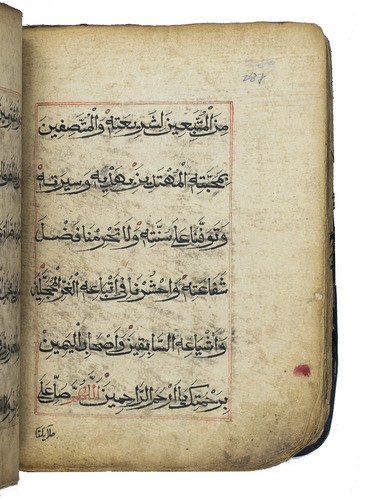 من المتبعين لشريعته والمتصفين
بمحبته المهتدين بهديه وسيرته
وتوفنا على سنته ولا تحرمنا فضل
شفاعته واحشرنا في اتباعه الغر المحجلين
واشياعه السابقين واصحاب اليمين
برحمتك يا ارحم الراحمين اللهم صل على